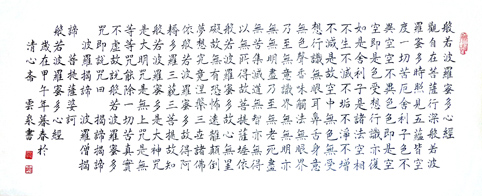 般若波羅蜜多心經
觀自在菩薩行深般若波
羅蜜多時照見五蘊皆空
度一切苦厄舍利子色不
異空空不異色色即是空
空即是色受想行識亦復
如是舍利子是諸法空相
不生不滅不垢不淨不增
不減是故空中無色無受
想行識無眼耳鼻舌身意
無色聲香味觸法無眼界
乃至無意識界無無明亦
無無明盡乃至無老死亦
無老死盡
無苦集滅道無智亦無得
以無所得故菩提薩埵依
般若波羅蜜多故心無罣
礙無罣
礙故無有恐怖遠離顛倒
夢想究竟涅槃三世諸佛
依般若波羅蜜多故得阿
耨多羅三藐三菩提故知
般若波羅蜜多是大神咒
是大明咒是無上咒是無
等等咒能除一切苦真實
不虛故說般若波羅蜜多
咒即說咒曰 揭諦揭諦
波羅揭諦 波羅僧揭
諦 菩提薩婆訶
般若波羅蜜多心經
歲在甲午年暮春於
清心齋 雲泉書